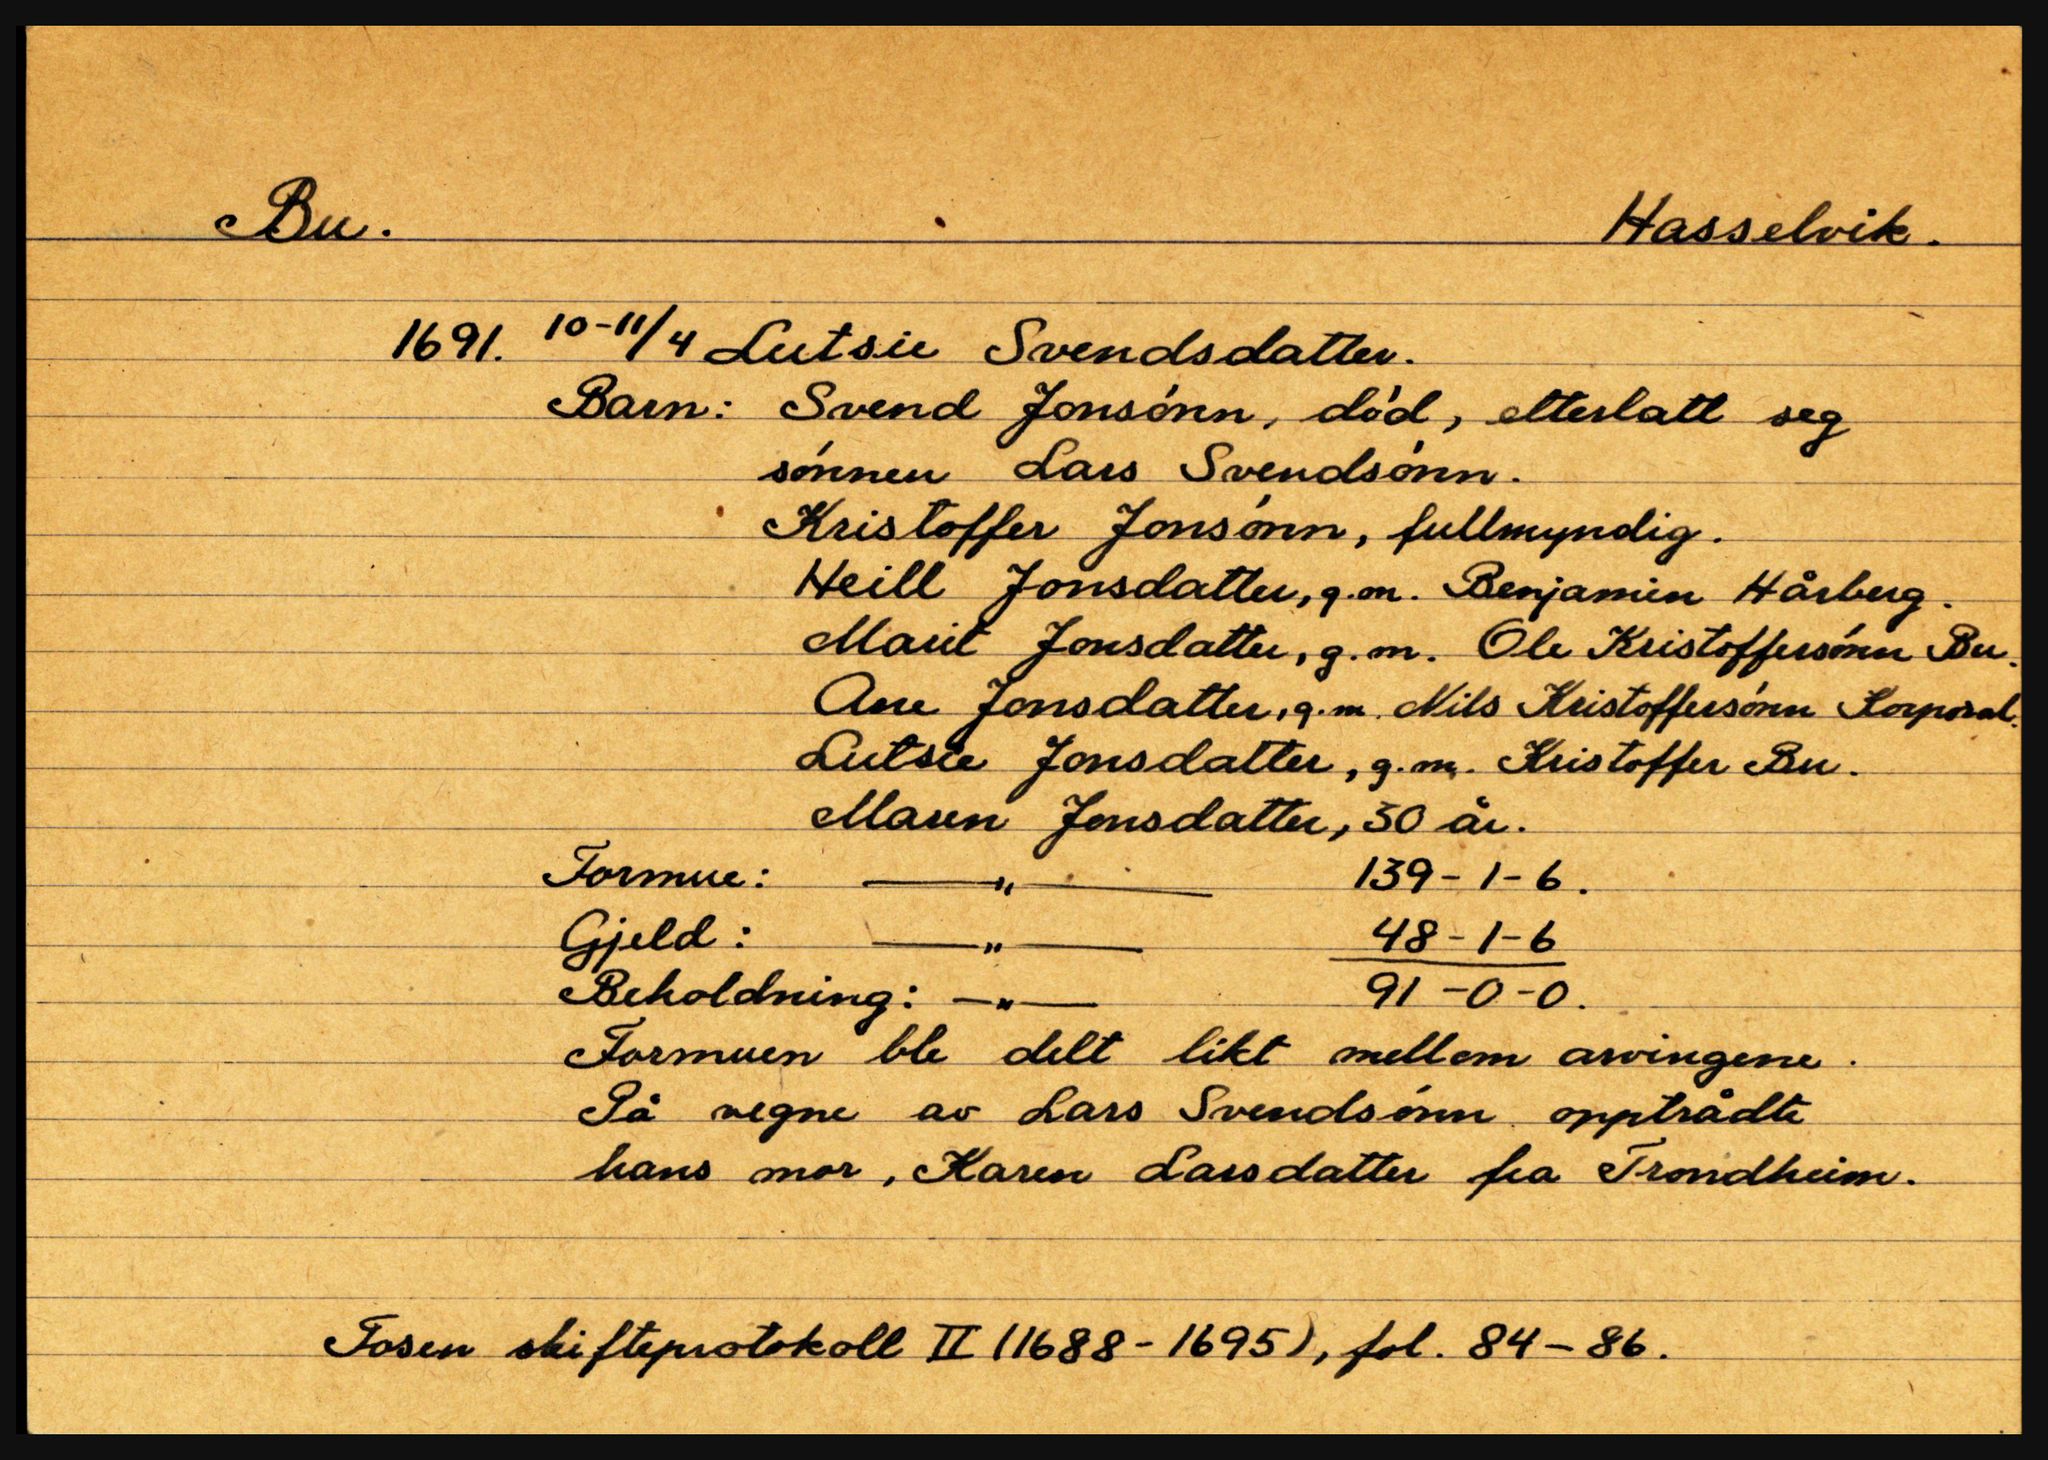 Bu. Hasselvik.
1691. 10-11/4 Lutsie Svendsdatter.
Barn: Svend Jonsønn, død, etterlatt seg
sønnen Lars Svendsønn.
Kristoffer Jonsønn, fullmyndig.
Heill Jonsdatter, g.m. Benjamin Hårberg.
Marit Jonsdatter, g.m. Ole Kristoffersønn Bu.
Ane Jonsdatter, g.m. Nils Kristoffersønn Korporal.
Lutsie Jonsdatter, g.m. Kristoffer Bu.
Maren Jonsdatter, 30 år.
Formue: —"— 139-1-6.
Gjeld: —"— 48-1-6
Beholdning: —"— 91-0-0.
Formuen ble delt likt mellom arvingene.
På vegne av Lars Svendsønn opptrådte
hans mor, Karen Larsdatter fra Trondheim.
Fosen skifteprotokoll II (1688-1695), fol. 84-86.